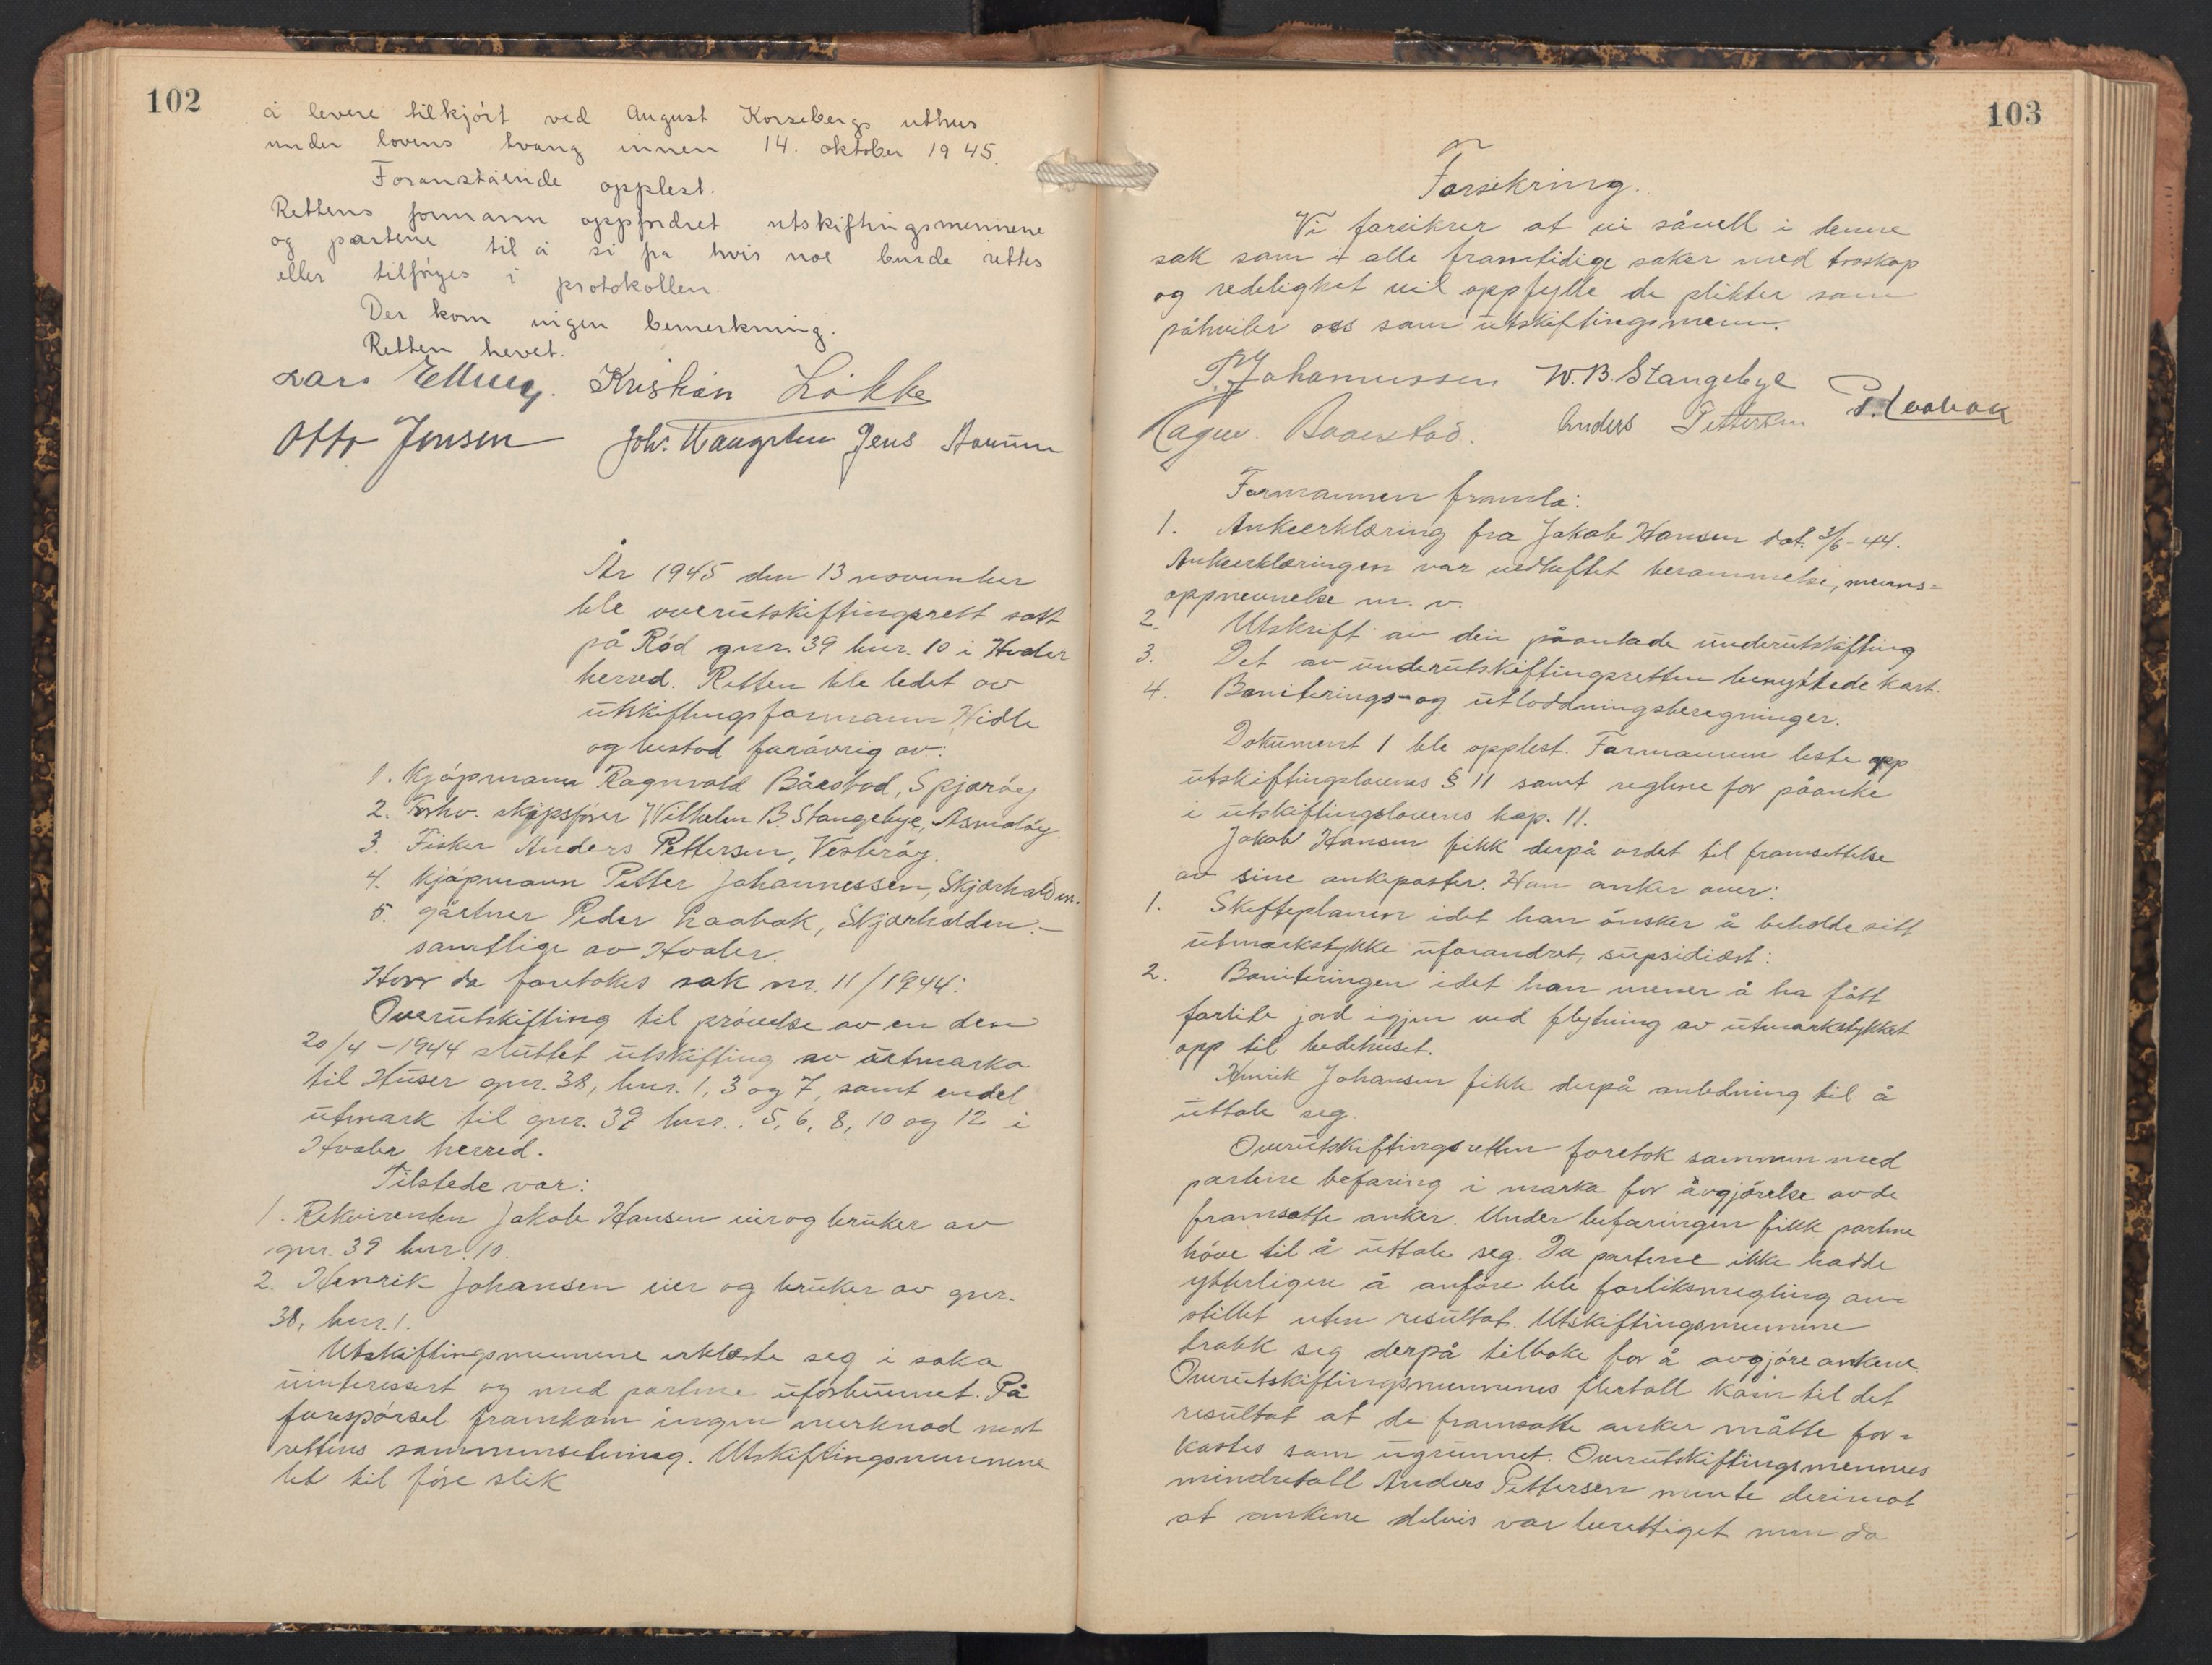 102
å levere tilkjørt ved August Korsebergs uthus
under lovens tvang innen 14. oktober 1945.
Foranstående opplest.
Rettens formann oppfordret utskiftingsmennene
og partene til å si fra hvis noe burde rettes
eller tilføyes i protokollen.
Der kom ingen bemerkning.
Retten hevet.
Lars Elling. Kristian Løkke
Otto Jensen Joh. Jens
År 1945 den 13 november
ble overutskiftingsrett satt
på Rød gnr. 39 bnr. 10 i Hvaler
herred. Retten ble ledet av
utskiftingsformann Hidle
og bestod forøvrig av:
1. Kjøpmann Ragnvald Båestad, Spjærøy
2. Forhv. skipsfører Wilhelm B. Stangebye, Asmaløy.
3. Fisker Anders Pettersen, Vesterøy.
4. Kjøpmann Petter Johannessen, Skjærhalden.
5. gårtner Peder Laabak, Skjærhalden. –
samtlige av Hvaler.
Hvor da foretokes sak nr. 11/1944:
Overutskifting til prøvelse av en den
20/4 – 1944 sluttet utskifting av utmarka
til Huser gnr. 38, bnr. 1, 3 og 7, samt endel
utmark til gnr. 39 bnr. 5, 6, 8, 10 og 12 i
Hvaler herred.
Tilstede var:
1. Rekvirenten Jakob Hansen eier og bruker av
gnr. 39 bnr. 10.
2. Henrik Johansen eier og bruker av gnr.
38, bnr. 1.
Utskiftingsmennene erklærte seg i saka
uinteressert og med partene uforbunnet. På
forespørsel framkom ingen merknad mot
rettens sammensetning. Utskiftingsmennene
let til føre slik
103
Forsikring.
Vi forsikrer at vi såvell i denne
sak som i alle framtidige saker med troskap
og redelighet vil oppfylle de plikter som
påhviler oss som utskiftingsmenn.
P. Johannessen W. B. Stangebye
Ragnv. Baaestad. Anders Pettersen P. Laabak
Formannen framla:
1. Ankeerklæring fra Jakob Hansen dat. 3/6 – 44.
Ankeerklæringen var vedheftet berammelse, menns=
oppnevnelse m. v.
2. Utskrift av den påankede underutskifting
3. Det av underutskiftingsretten benyttede kart.
4. Boniterings- og utloddningsberegninger.
Dokument 1 ble opplest. Formannen leste opp
utskiftingslovens § 11 samt reglene for påanke
i utskiftingslovens kap. 11.
Jakob Hansen fikk derpå ordet til framsettelse
av sine ankeposter. Han anker over:
1. Skifteplanen idet han ønsker å beholde sitt
utmarkstykke uforandret, supsidiært:
2. Boniteringen idet han mener å ha fått
forlite jord igjen ved flytning av utmarkstykket
opp til bedehuset.
Henrik Johansen fikk derpå anledning til å
uttale seg.
Overutskiftingsretten foretok sammen med
partene befaring i marka for avgjørelse av de
framsatte anker. Under befaringen fikk partene
høve til å uttale seg. Da partene ikke hadde
ytterligere å anføre ble forliksmegling an=
stillet uten resultat. Utskiftingsmennene
trakk seg derpå tilbake for å avgjøre ankene.
Overutskiftingsmennenes flertall kom til det
resultat at de framsatte anker måtte for=
kastes som ugrunnet. Overutskiftingsmennes
mindretall Anders Pettersen mente derimot
at ankene delvis var berettiget men da